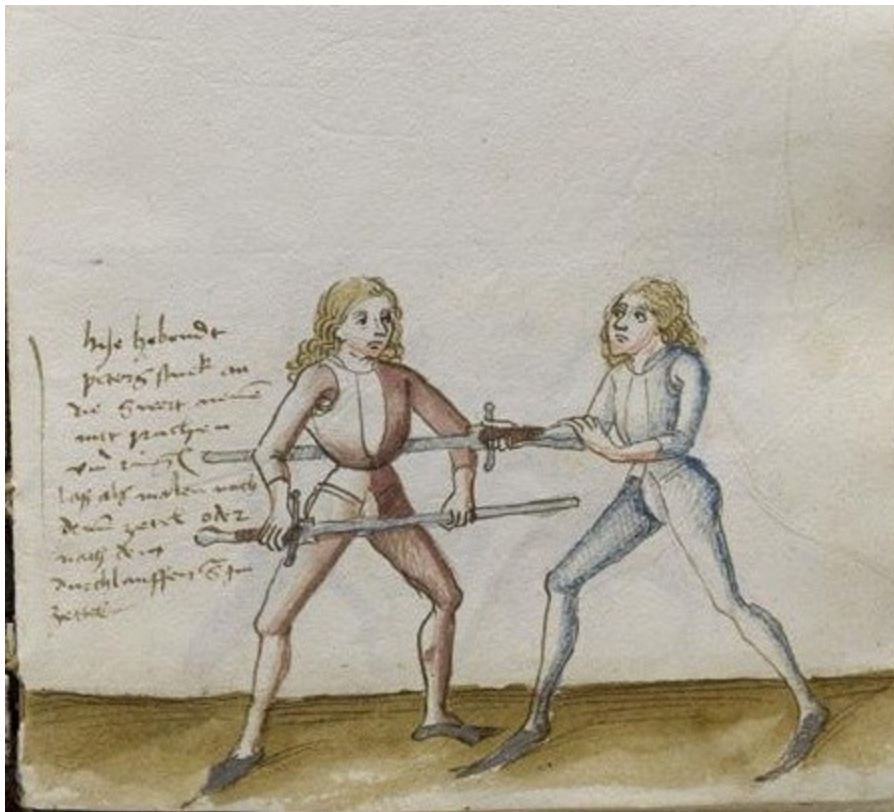 hie hebendt
peters stuck an
die swert nemen
mit prechen
vnd ringen
laß als malen nach
dem zetel oder
nach dem
durchlauffen
zetel